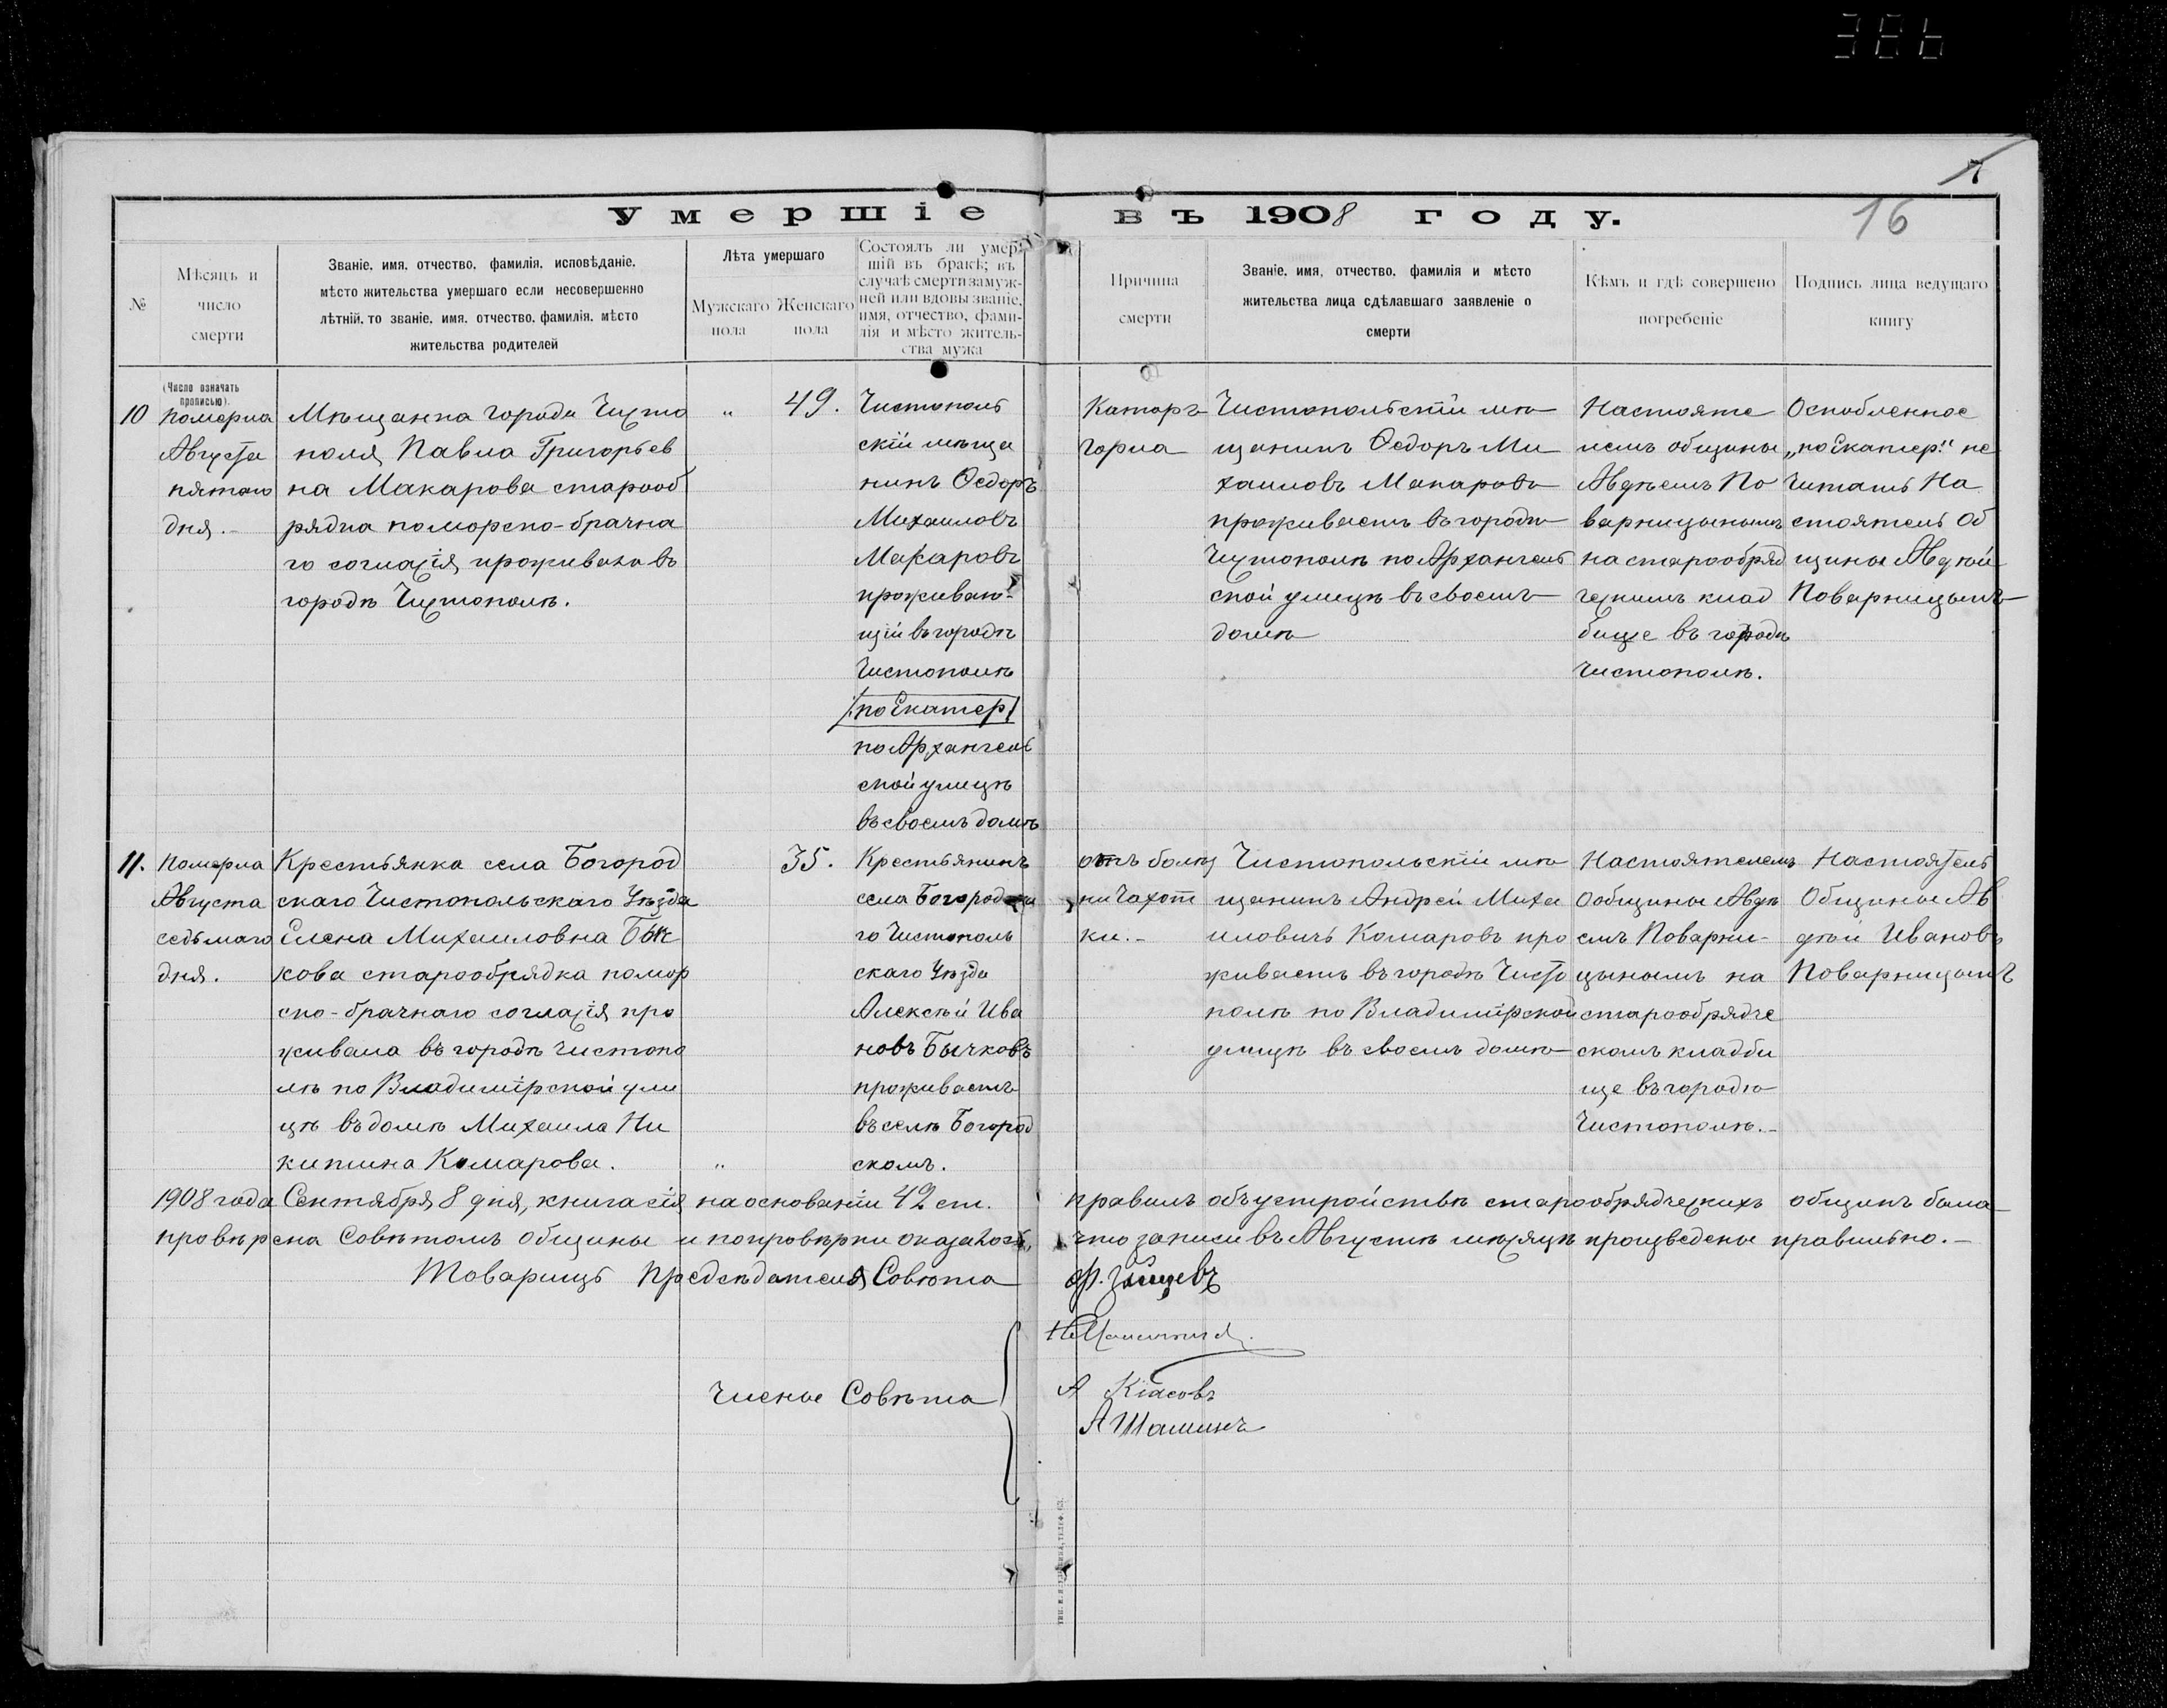 7
16
Умершіе въ 1908 году.
№
Мѣсяцъ и
число
смерти
(Число означать
прописью).
Званіе, имя, отчество, фамилія, исповѣданіе,
мѣсто жительства умершаго если несовершенно
лѣтній, то званіе, имя, отчество, фамилія, мѣсто
жительства родителей
Лѣта умершаго
Мужскаго
пола
Женскаго
пола
Состоялъ ли умер-
шій въ бракѣ; въ
случаѣ смерти замуж-
ней или вдовы званіе,
имя, отчество, фами-
лія и мѣсто житель-
ства мужа
Причина
смерти
Званіе, имя, отчество, фамилія и мѣсто
жительства лица сдѣлавшаго заявленіе о
смерти
Кѣмъ и гдѣ совершено
погребеніе
Подпись лица ведущаго
книгу
10
померла
Августа
пятаго
дня.-
Мѣщанка города Чисто
поля, Павла Григорьев
на Макарова старооб
рядка поморско-брачна
го согласія, проживала въ
городѣ Чистополѣ.
"
49.
Чистополь
скій мѣща
нинъ Ѳедоръ
Михаиловъ
Макаровъ
проживаю-
щій въ городѣ
Чистополѣ
/:по Екатер/
по Архангель
ской улицѣ
въ своемъ домѣ
Катаръ
горла
Чистопольскій мѣ
щанинъ Ѳедоръ Ми
хаиловъ Макаровъ
проживаетъ въ городѣ
Чистополѣ по Архангель
ской улицѣ въ своемъ
домѣ
Настояте
лемъ общины
Авдѣемъ По
варницынымъ
на старообряд
ческомъ клад
бище въ городѣ
Чистополѣ.
Оскобленное
„по Екатер." не
читать На
стоятель Об
щины Авдѣй
Поварницынъ
11.
Померла
Августа
седьмаго
дня.
Крестьянка села Богород
скаго Чистопольскаго Уѣзда
Елена Михаиловна Быч
кова старообрядка помор
ско-брачнаго согласія про
живала въ городѣ Чистопо
лѣ по Владимірской ули
цѣ въ домѣ Михаила Ни
китина Комарова.
"
35.
Крестьянинъ
села Богородска
го Чистополь
скаго Уѣзда
Алексѣй Ива
новъ Бычковъ
проживаетъ
въ селѣ Богород
скомъ.
отъ болѣз
ни Чахот
ки.-
Чистопольскій мѣ
щанинъ Андрей Миха
иловичъ Комаровъ про
живаетъ въ городѣ Чисто
полѣ по Владимірской
улицѣ въ своемъ домѣ
Настоятелемъ
Общины Авдѣ
емъ Поварни-
цынымъ на
старообрядче
скомъ кладби
ще въ городѣ
Чистополѣ.-
Настоятель
Общины Ав
дѣй Ивановъ
Поварницынъ
1908 года Сентября 8 дня, книга сія, на основаніи 42 ст. правилъ объ устройствѣ старообрядческихъ общинъ была
провѣрена Совѣтомъ Общины и по провѣрки оказалось, что записи въ Августѣ мѣсяцѣ произведены правильно.-
Товарищъ Предсѣдателя Совѣта
Члены Совѣта
А Кіасовъ
А Шашинъ